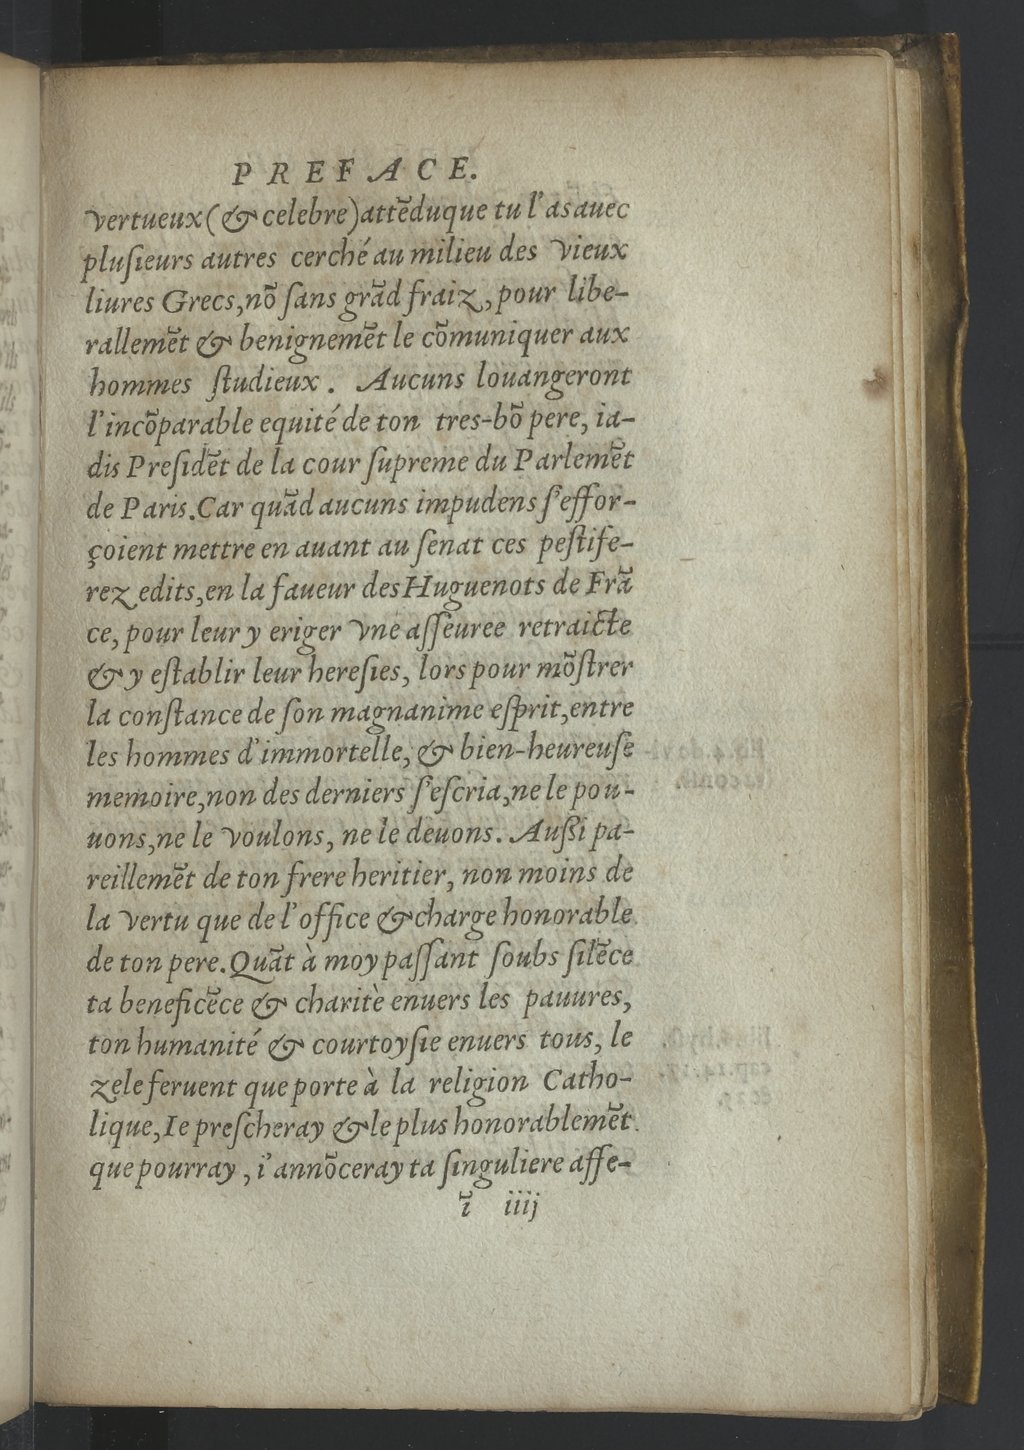 PREFACE.
vertueux(& celebre)attēduque tu l'as auec
pluſieurs autres cerché au milieu des vieux
liures Grecs,nõ ſans grād fraiz,pour libe-
rallemēt & benignemēt le cõmuniquer aux
hommes ſtudieux. Aucuns louangeront
l'incõparable equité de ton tres-bõ pere, ia-
dis Preſidēt de la cour ſupreme du Parlemēt
de Paris.Car quād aucuns impudens ſ'effor-
çoient mettre en auant au ſenat ces peſtife-
rez edits,en la faueur des Huguenots de Frā
ce, pour leur y eriger vne aſſeuree retraicte
& y eſtablir leur hereſies, lors pour mõſtrer
la conſtance de ſon magnanime eſprit,entre
les hommes d'immortelle, & bien-heureuſe
memoire,non des derniers ſ'eſcria,ne le pou-
uons,ne le voulons, ne le deuons. Auſſi pa-
reillemēt de ton frere heritier, non moins de
la vertu que de l'office & charge honorable
de ton pere.Quāt à moy paſſant ſoubs ſilēce
ta beneficēce & charitè enuers les pauures,
ton humanité & courtoyſie enuers tous, le
zele feruent que porte à la religion Catho-
lique,Ie preſcheray & le plus honorablemēt
que pourray, i'annõceray ta ſinguliere affe-
ĩ iiij